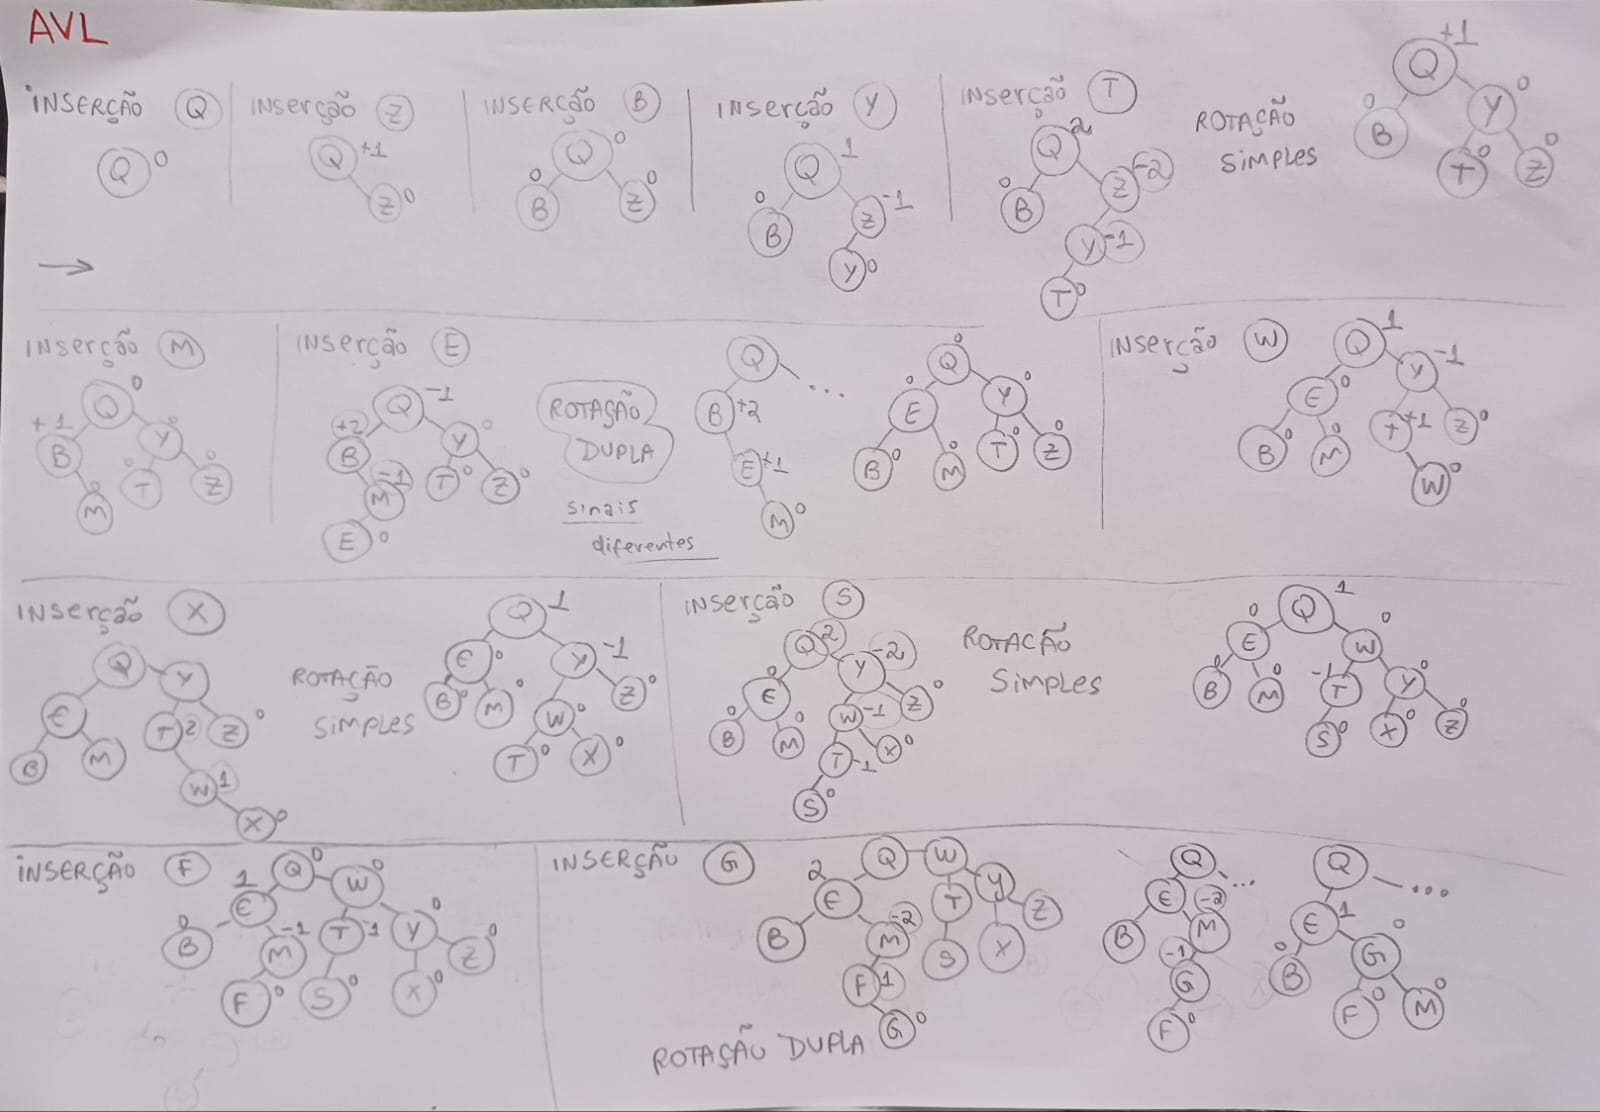 AVL
INSERÇÃO Q
Q 0
INSERÇÃO Z
Q +1
Z 0
INSERÇÃO B
Q 0
0 B Z 0
INSERÇÃO Y
Q 1
0 B Z -1
Y 0
INSERÇÃO T
Q 2
0 B Z -2
Y -1
T 0
ROTAÇÃO
SIMPLES
Q +1
0 B Y 0
T 0 Z 0
INSERÇÃO M
Q 0
+1 B Y 0
M 0 T 0 Z 0
INSERÇÃO E
Q -1
+2 B Y 0
M -1 T 0 Z 0
E 0
ROTAÇÃO
DUPLA
sinais
diferentes
Q ...
B +2
E +1
M 0
Q 0
E 0 Y 0
B 0 M 0 T 0 Z 0
INSERÇÃO W
Q 1
E 0 Y -1
B 0 M 0 T +1 Z 0
W 0
INSERÇÃO X
Q Y
E T 2 Z 0
B M W 1
X 0
ROTAÇÃO
SIMPLES
Q 1
E 0 Y -1
B 0 M 0 W 0 Z 0
T 0 X 0
INSERÇÃO S
Q 2
E 0 Y -2
B 0 M 0 W -1 Z 0
T -1 X 0
S 0
ROTACÃO
SIMPLES
Q 1
0 E W 0
B 0 M 0 -1 T Y 0
S 0 X 0 Z 0
INSERÇÃO F
Q 0 W 0
1 E
B 0 M -1 T -1 Y 0 Z 0
F 0 S 0 X 0
INSERÇÃO G
Q W
2 E T Y
B M -2 S X Z
F 1
G 0
ROTAÇÃO DUPLA
Q ...
E -2
B M
-1 G
F 0
Q ...
E 1
0 B G 0
F 0 M 0